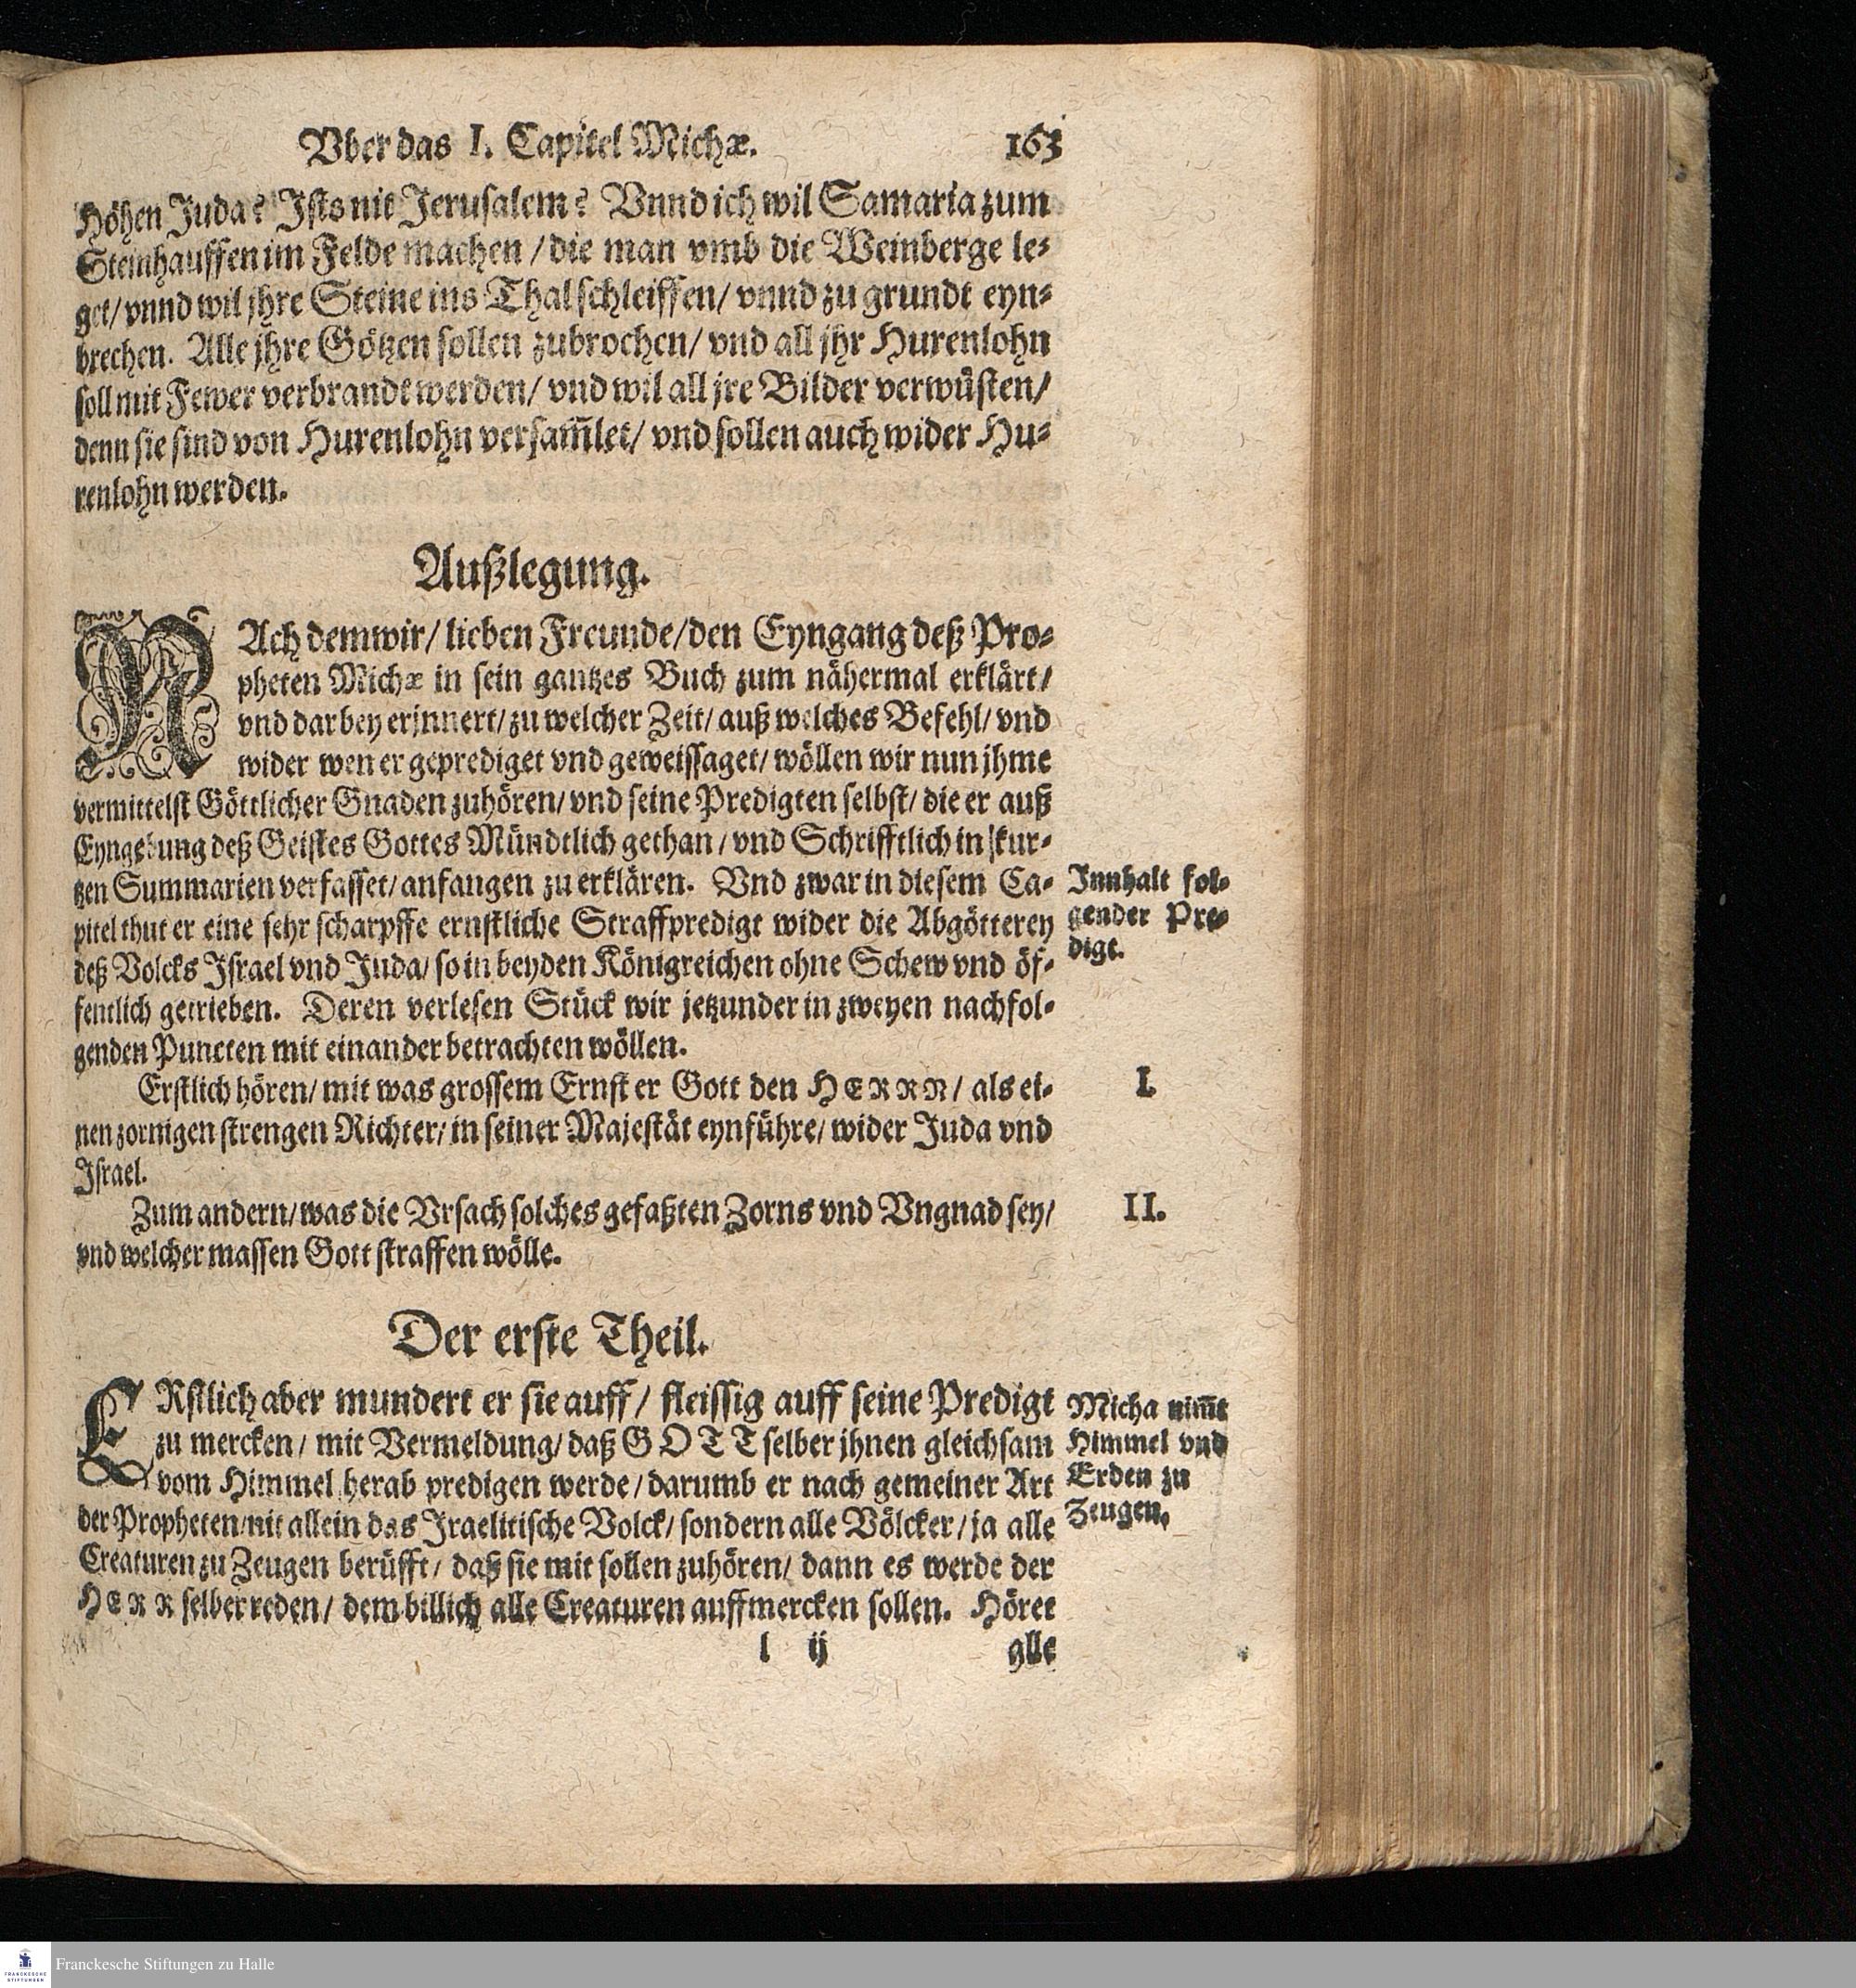 Vber das I. Capitel Michæ. 163
Höhen Juda? Ists nit Jerusalem? Vnnd ich wil Samaria zum
Steinhauffen im Felde machen / die man vmb die Weinberge le-
get/ vnnd wil jhre Steine ins Thal schleiffen/ vnnd zu grundt eyn-
brechen. Alle jhre Götzen sollen zubrochen/ vnd all jhr Hurenlohn
soll mit Fewer verbrandt werden/ vnd wil all jre Bilder verwüsten/
denn sie sind von Hurenlohn versam̃let/ vnd sollen auch wider Hu-
renlohn werden.
Außlegung.
NAch dem wir/ lieben Freunde/ den Eyngang deß Pro-
pheten Michæ in sein gantzes Buch zum nähermal erklärt/
vnd darbey erjnnert/ zu welcher Zeit/ auß welches Befehl/ vnd
wider wen er geprediget vnd geweissaget/ wöllen wir nun jhme
vermittelst Göttlicher Gnaden zuhören/ vnd seine Predigten selbst/ die er auß
Eyngebung deß Geistes Gottes Mündtlich gethan / vnd Schrifftlich in kur-
tzen Summarien verfasset/ anfangen zu erklären. Vnd zwar in diesem Ca-
pitel thut er eine sehr scharpffe ernstliche Straffpredigt wider die Abgötterey
deß Volcks Israel vnd Juda/ so in beyden Königreichen ohne Schew vnd öf-
fentlich getrieben. Deren verlesen Stück wir jetzunder in zweyen nachfol-
genden Puncten mit einander betrachten wöllen.
Innhalt fol-
gender Pre-
digt.
Erstlich hören/ mit was grossem Ernst er Gott den HERRN/ als ei-
nen zornigen strengen Richter/ in seiner Majestät eynführe/ wider Juda vnd
Israel.
I.
Zum andern/ was die Vrsach solches gefaßten Zorns vnd Vngnad sey/
vnd welcher massen Gott straffen wölle.
II.
Der erste Theil.
ERstlich aber mundert er sie auff / fleissig auff seine Predigt
zu mercken / mit Vermeldung/ daß GOTT selber jhnen gleichsam
vom Himmel herab predigen werde / darumb er nach gemeiner Art
der Propheten/ nit allein das Jraelitische Volck/ sondern alle Völcker / ja alle
Creaturen zu Zeugen berüfft/ daß sie mit sollen zuhören/ dann es werde der
HERR selber reden/ dem billich alle Creaturen auffmercken sollen. Höret
Micha nim̃t
Himmel vnd
Erden zu
Zeugen.
l ij alle
FRANCKESCHE
STIFTUNGEN
Franckesche Stiftungen zu Halle